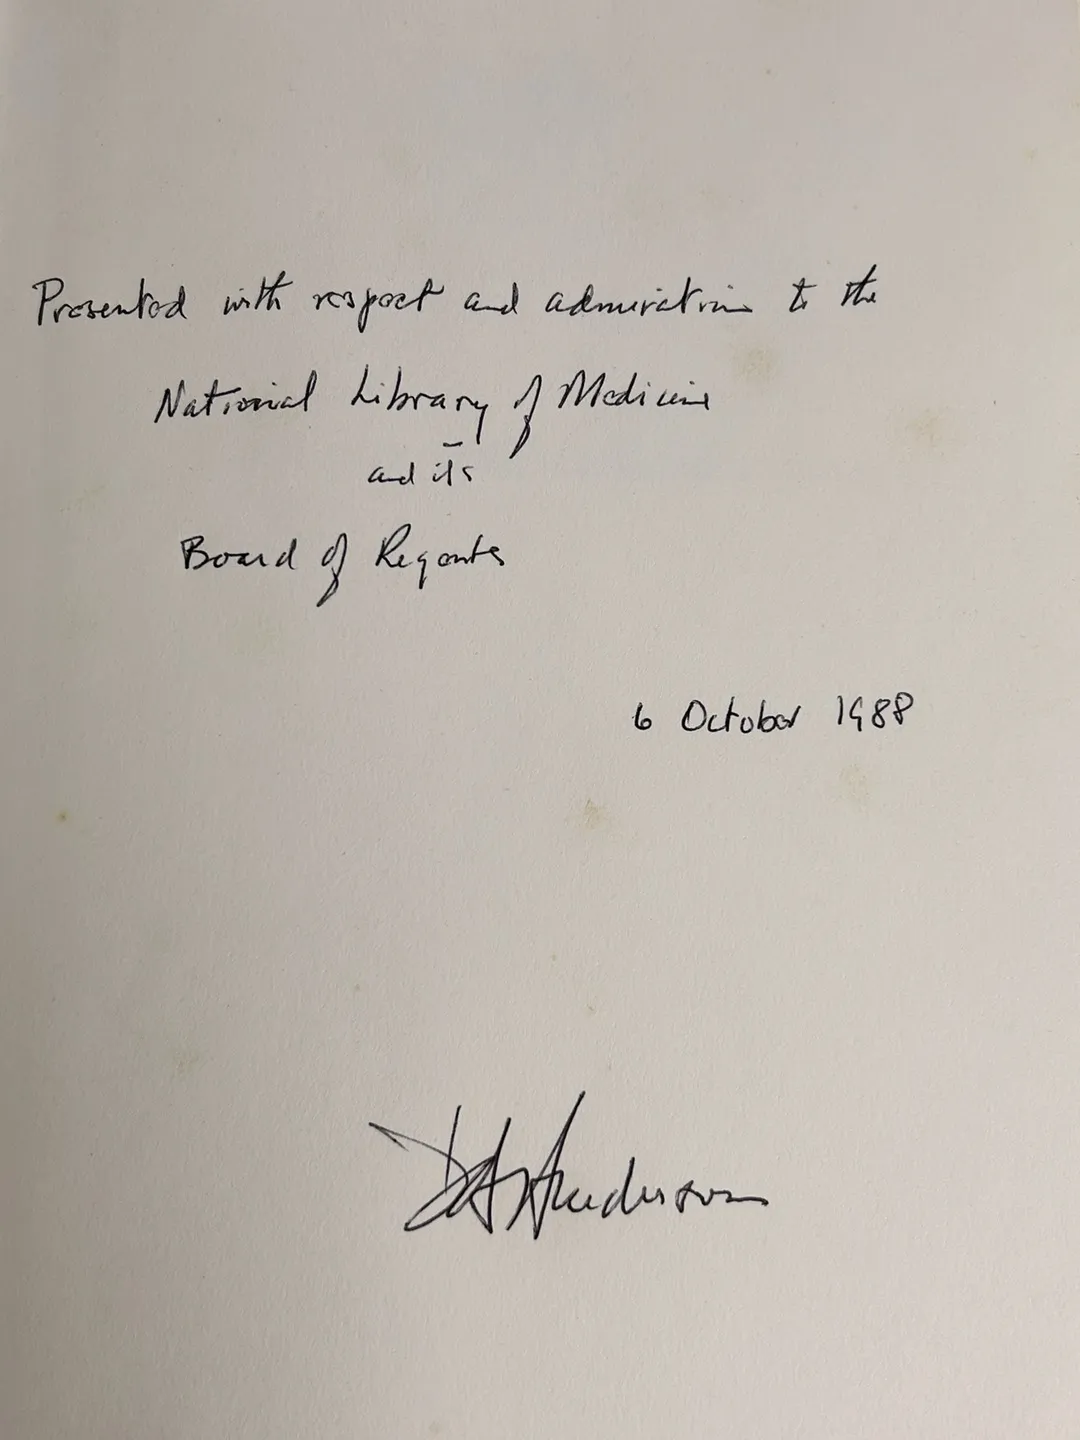 Presented with respect and admiration to the
National Library of Medicine
and its
Board of Regents
6 October 1988
Henderson